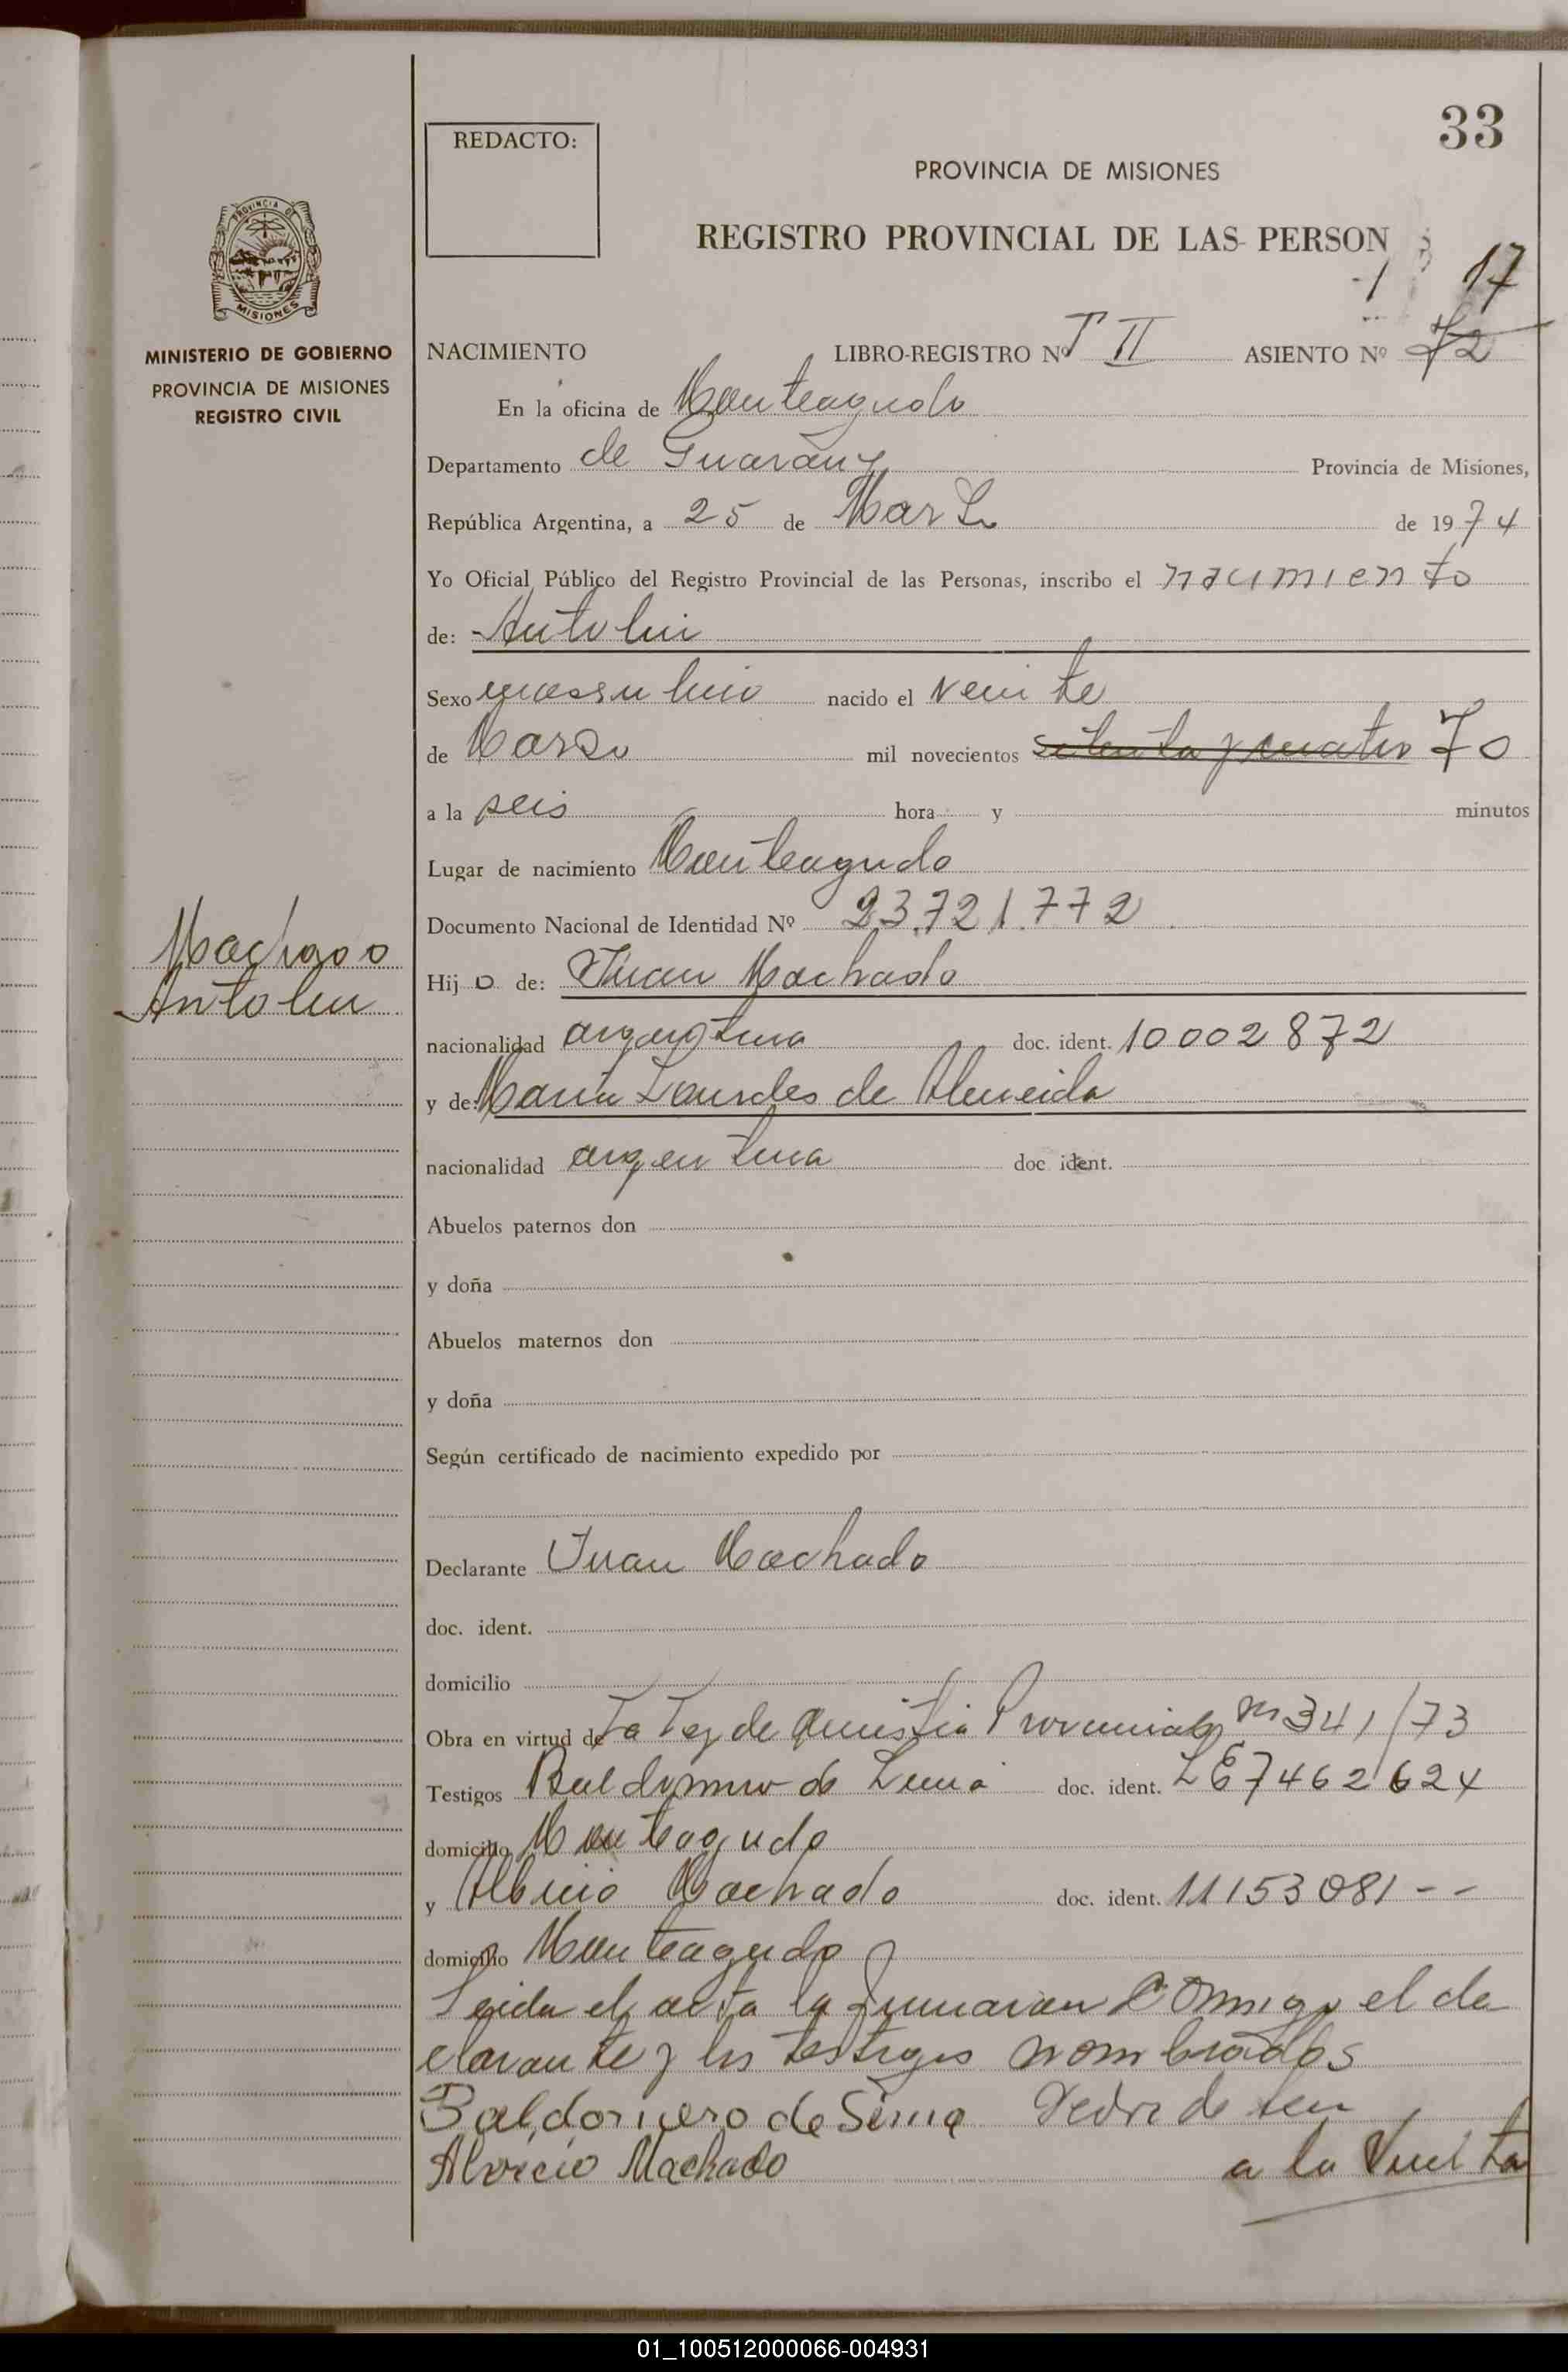 33
REDACTO:
PROVINCIA DE MISIONES
REGISTRO PROVINCIAL DE LAS PERSON
17
PROVINCIA DE
MISIONES
MINISTERIO DE GOBIERNO
PROVINCIA DE MISIONES
REGISTRO CIVIL
NACIMIENTO LIBRO-REGISTRO Nº T II ASIENTO Nº 72
En la oficina de Monteagudo
Departamento de Guarany Provincia de Misiones,
República Argentina, a 25 de Marzo de 1974
Yo Oficial Público del Registro Provincial de las Personas, inscribo el nacimiento
de: Antolin
Sexo masculino nacido el veinte
de Marzo mil novecientos setenta y cuatro 70
a la seis hora y minutos
Lugar de nacimiento Monteagudo
Documento Nacional de Identidad Nº 23.721.772
Machado
Antolin
Hijo de: Juan Machado
nacionalidad argentina doc. ident. 10002872
y de: Maria Lourdes de Almeida
nacionalidad argentina doc ident.
Abuelos paternos don
y doña
Abuelos maternos don
y doña
Según certificado de nacimiento expedido por
Declarante Juan Machado
doc. ident.
domicilio
Obra en virtud de la Ley de Amistia Provincial 341/73
Testigos Baldomero de Lima doc. ident. LE 7462624
domicilio Monteagudo
y Albicio Machado doc. ident. 11153081--
domicilio Monteagudo
Leida el acta la firmaran comigo el de
clarante y los testigos nombrados
Baldomero de Sima Pedro de
Alvicio Machado a la Vuelta
01_100512000066-004931